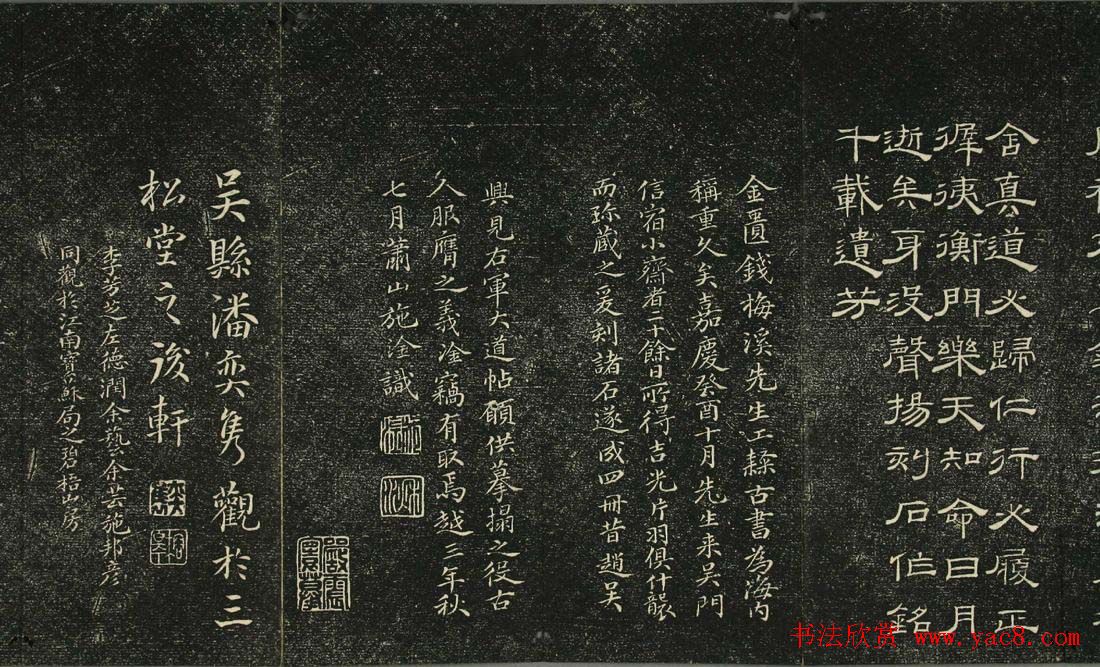 舍真道必歸仁行必履正
徲洟衡門樂天知命日月
逝矣身没聲揚刻石作銘
千載遺芳
金匱錢梅溪先生工隸古書為海内
稱重久矣嘉慶癸酉十月先生来吴門
信宿小齋者二十餘日所得吉光片羽俱什襲
而珍藏之爰刻諸石遂成四冊昔趙吴
興見右軍大道帖願供摹搨之役古
人服膺之義淦竊有取焉越三年秋
七月蕭山施淦識
吴縣潘奕雋觀於三
松堂之後軒
李芳芝左德潤余藝余芸施邦彦
同觀於江南寶蘇局之碧梧山房
书法欣赏 www.yac8.com